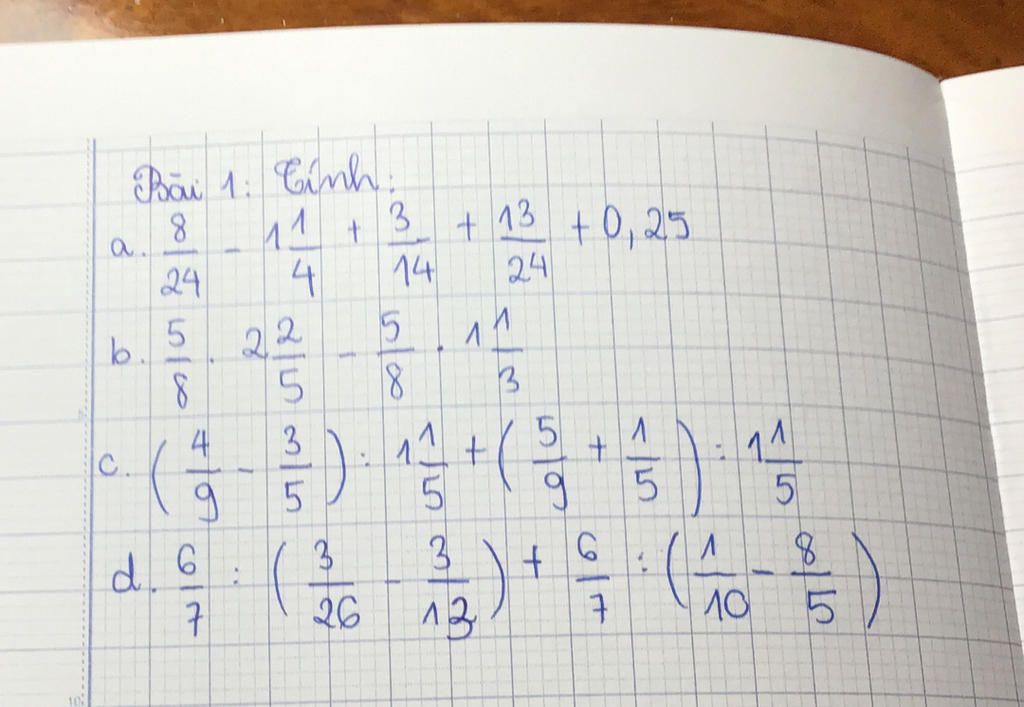 Bài 1: Tính:
a. 8/24 - 1 1/4 + 3/14 + 13/24 + 0,25
b. 5/8 . 2 2/5 - 5/8 . 1 1/3
c. (4/9 - 3/5) : 1 1/5 + (5/9 + 1/5) : 1 1/5
d. 6/7 : (3/26 - 3/13) + 6/7 : (1/10 - 8/5)